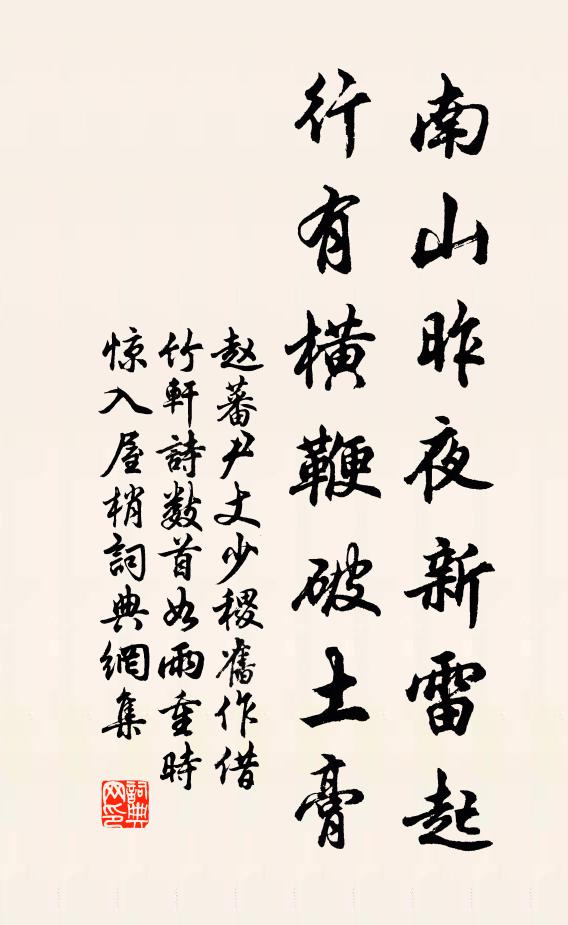 南山昨夜新雷起
行有横鞭破土膏
赵蕃尹丈少稷旧作借
竹軒詩数首如雨重時
惊入屋梢詞典網集
詞典网印